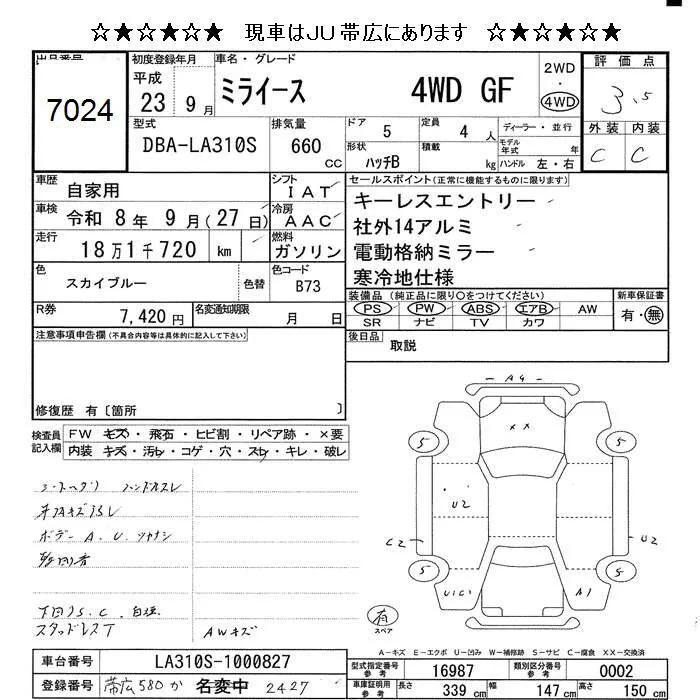 ☆★☆★☆★☆ 現車はJU帯広にあります ☆★☆★☆★☆
出品番号
7024
初度登録年月
平成
23 9月
車名・グレード
ミライース 4WD GF
2WD
4WD
評価点
3.5
型式
DBA-LA310S
排気量
660
cc
ドア 5
定員 4 人
ディーラー・並行
形状 ハッチB
積載 kg
モデル年式 年
ハンドル 左・右
外装 内装
C C
車歴 自家用
シフト IAT
車検 令和 8年 9月(27日)
冷房 AAC
走行 18万1千720 km
燃料 ガソリン
色 スカイブルー
色替
色コード B73
R券 7,420円
名変通知期限 月 日
セールスポイント(正常に機能するものに限ります)
キーレスエントリー
社外14アルミ
電動格納ミラー
寒冷地仕様
装備品(純正品に限り○をつけてください)
PS PW ABS エアB AW
SR ナビ TV カワ
新車保証書
有・無
後日品 取説
注意事項申告欄(不具合内容等は具体的に記入して下さい)
修復歴 有〔箇所 〕
検査員記入欄
FW キズ・飛石・ヒビ割・リペア跡・×要
内装 キズ・汚レ・コゲ・穴・スレ・キレ・破レ
シートヘタリ ハンドルスレ
ボデー A.U.
下回りS.C.
スタッドレスT
AWキズ
A4
××
5
5
U2
C2
U2
5
5
U1C1
A1
有
スペア
A-キズ E-エクボ U-凹み W-補修跡 S-サビ C-腐食 XX-交換済
車台番号 LA310S-1000827
登録番号 帯広580か 名変中 2427
型式指定番号参考 16987
類別区分番号参考 0002
車庫証明用参考 長さ 339cm 幅 147cm 高さ 150cm